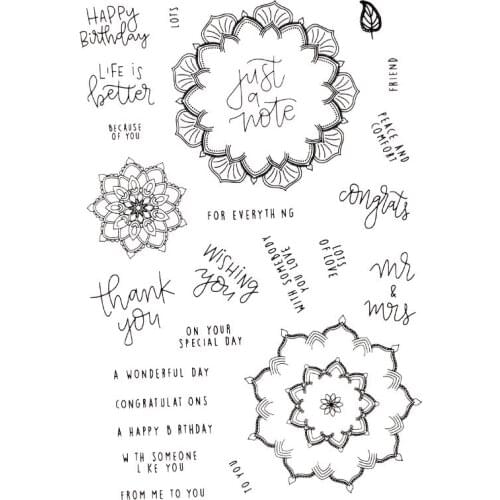 HAPPY
Birthday
LOTS
LIFE IS
better
BECAUSE
OF YOU
just
a
note
FRIEND
PEACE AND
COMFORT
FOR EVERYTH NG
congrats
WISHING
you
WITH SOMEBODY
YOU LOVE
LOTS
OF LOVE
mr
&
mrs
thank
you
ON YOUR
SPECIAL DAY
A WONDERFUL DAY
CONGRATULAT ONS
A HAPPY B RTHDAY
W TH SOMEONE
L KE YOU
TO YOU
FROM ME TO YOU